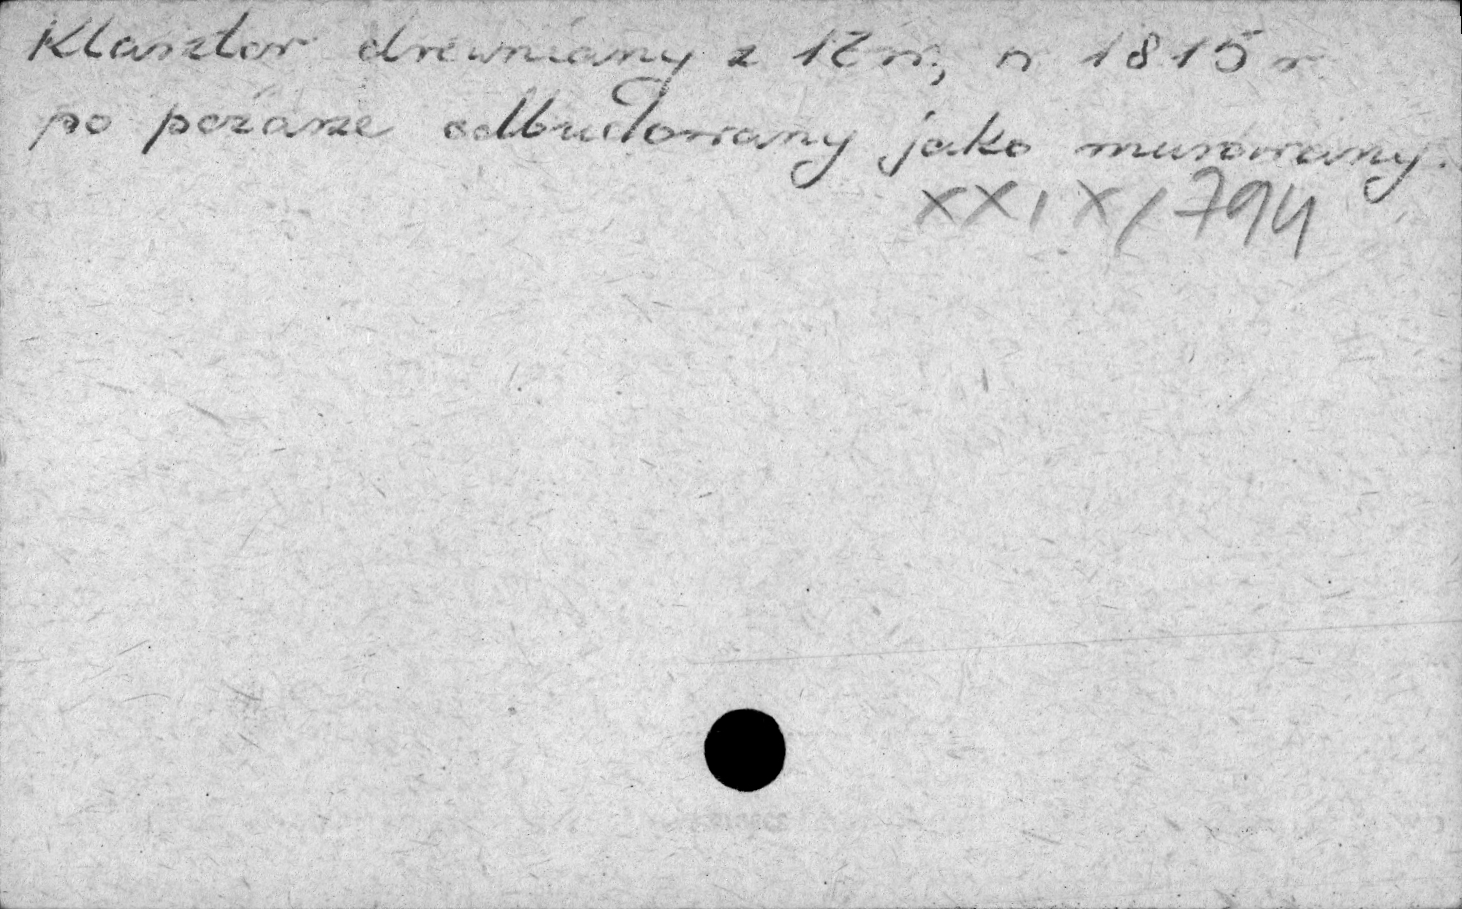 Klasztor drewniany z 12 w., w 1815 r.
po pożarze odbudowany jako murowany.
XXIX/794